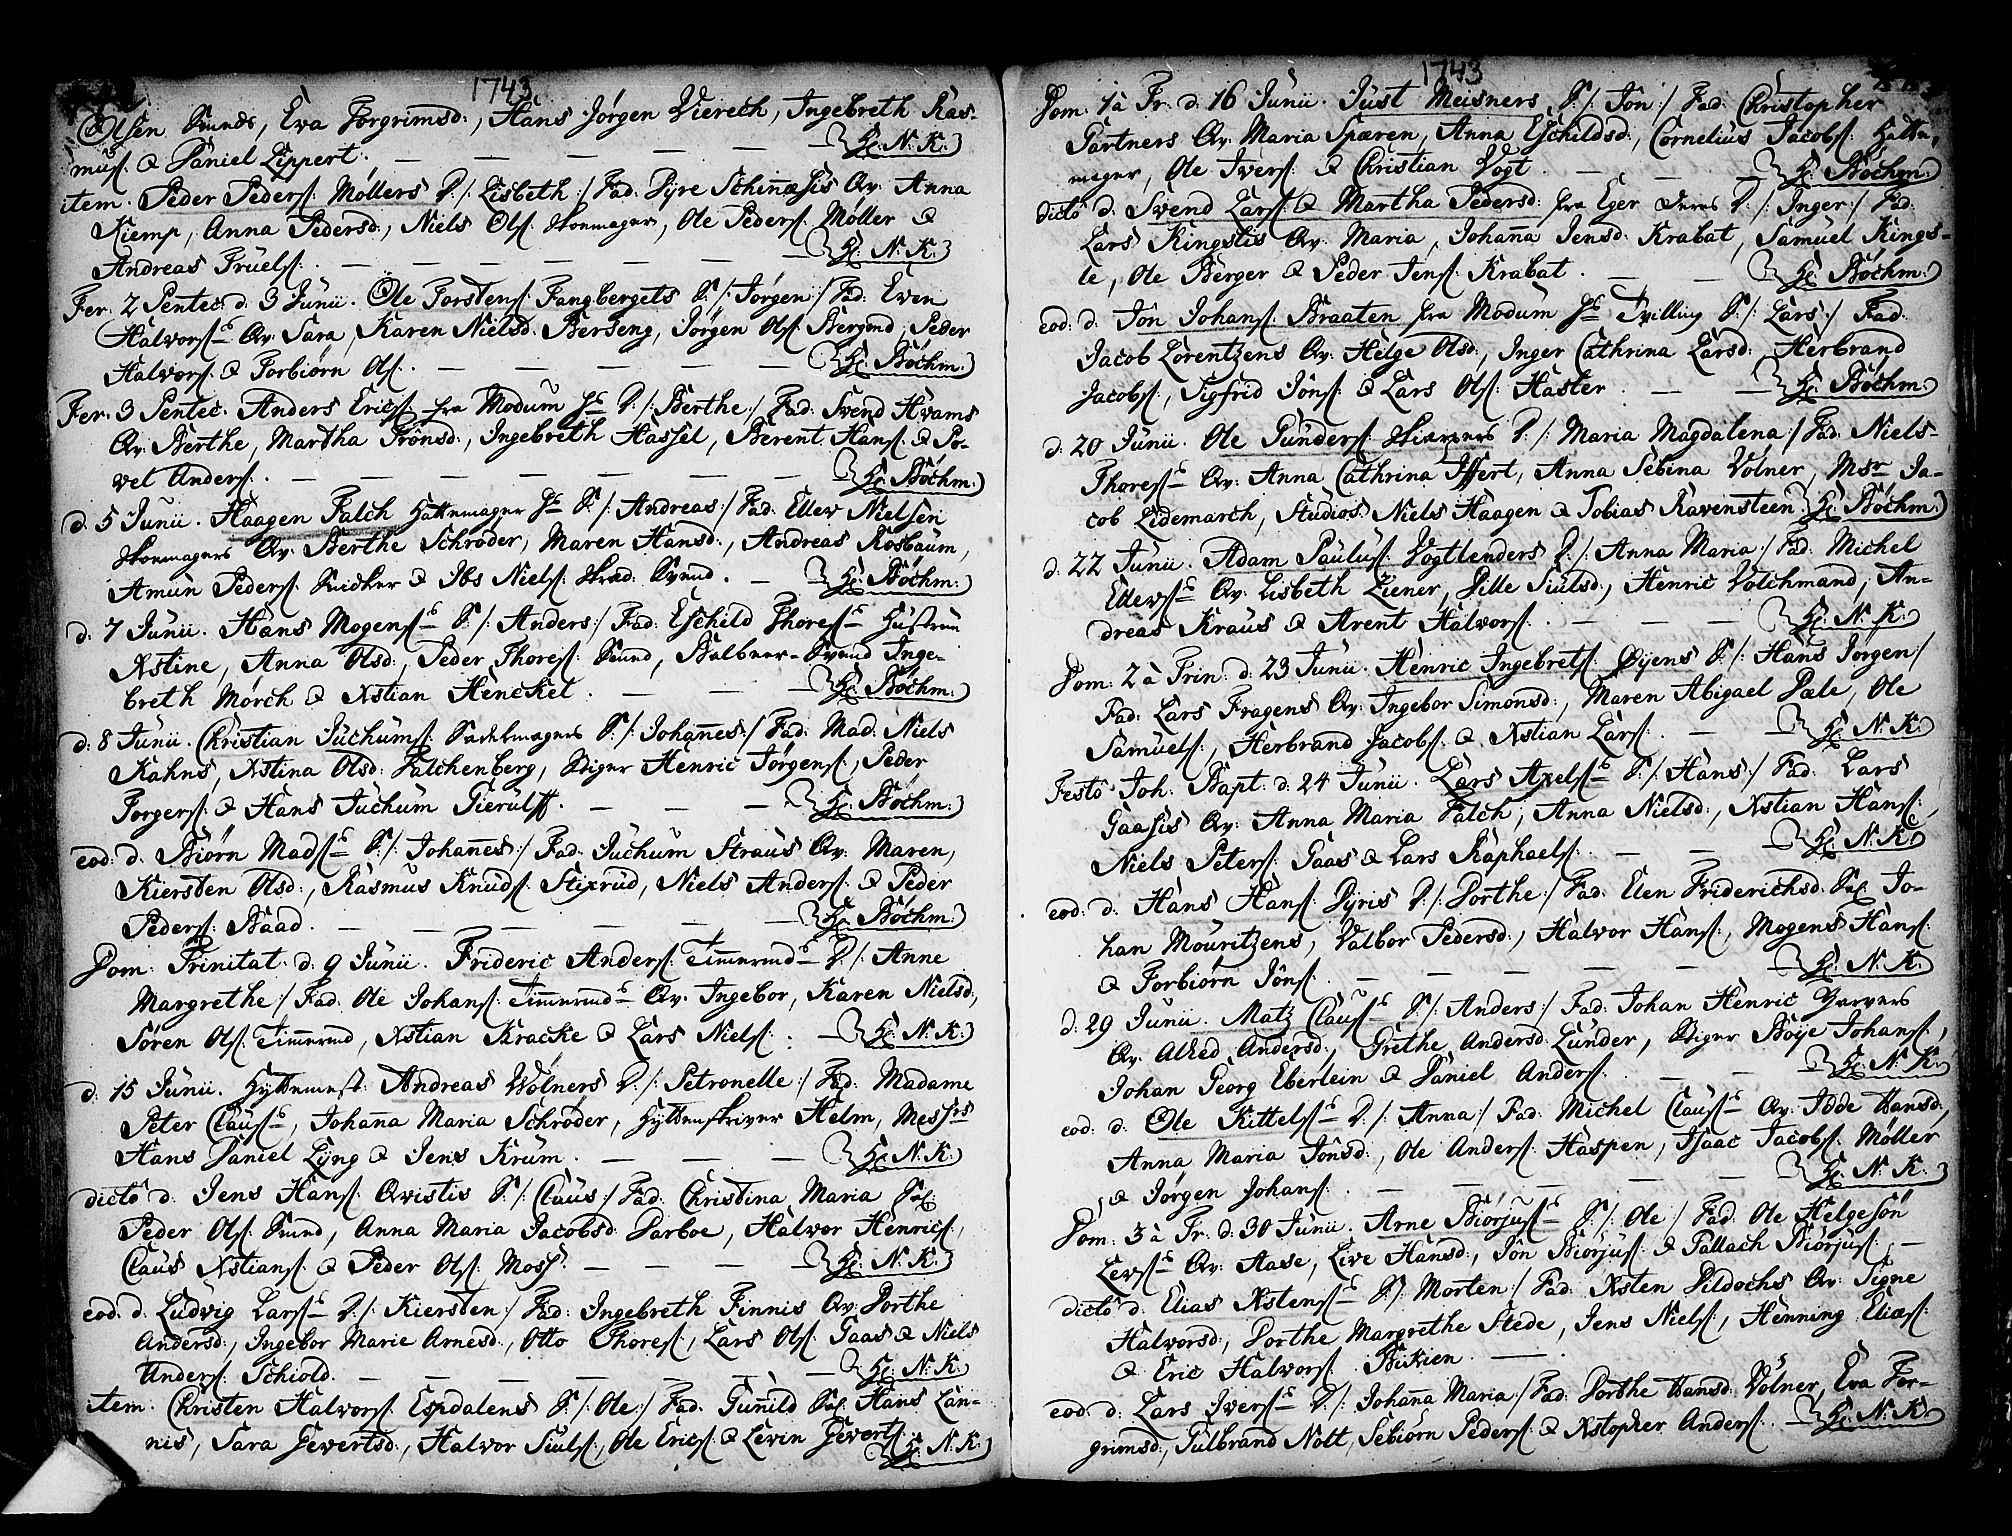 1743
Olsen Svends, Eva Torgrimsd:, Hans Jørgen Viereck, Ingebreth Ras-
mus: & Daniel Lippert. — — — — — Hr: N: K:
item. Peder Peders: Møllers D:/: Lisbeth:/ Fad: Dyre Schinnesis Qv: Anna
Kiemp, Anna Pedersd:, Niels Ols: Skomager, Ole Peders: Møller &
Andreas Truels:. — — — — — Hr: N: K:
Fer: 2 Pentec: d: 3 Junii. Ole Torstens: Fangbergets S:/: Jørgen:/ Fad: Even
Halvors:ns Qv: Sara, Karen Nielsd: Berseng, Jørgen Ols: Bergmd, Peder
Halvors: & Torbiørn Ols:. — — — — Hr: Bøchm:
Fer: 3 Pentec: Anders Erics: fra Modum hs D:/: Berthe:/ Fad: Svend Hvams
Qv: Berthe, Martha Trønsd:, Ingebreth Hassel, Berent Hans: & Po-
vel Anders:. — — — — — Hr: Bøchm:
d: 5 Junii. Haagen Falch Hattemager hs S:/: Andreas:/ Fad: Ellev Nielsen
Skomagers Qv: Berthe Schrøder, Maren Hansd:, Andreas Rosbaum,
Amun Peders: Snidker & Ibs Niels: Skræd: Svend. — Hr: Bøchm:
d: 7 Junii. Hans Mogens:ns S:/: Anders:/ Fad: Eschild Thores:ns Hustrue
Xstine, Anna Olsd:, Peder Thores: Smed, Balbeer-Svend Inge-
breth Mørch & Xstian Henckel. — — — Hr: Bøchm:
d: 8 Junii. Christian Juchums: Sadelmagers S:/: Johannes:/ Fad: Mad: Niels
Kahns, Xstina Olsd: Falchenberg, Stiger Henric Jørgens:, Peder
Torgers: & Hans Juchum Gierulff. — — — Hr: Bøchm:
eod: d: Biørn Mads:ns S:/: Johannes:/ Fad: Juchum Straus Qv: Maren,
Kiersten Olsd:, Rasmus Knuds: Stixrud, Niels Anders: & Peder
Peders: Baad. — — — — — Hr: Bøchm:
Dom: Trinitat: d: 9 Junii. Frideric Anders: Timmermds D:/: Anne
Margrethe:/ Fad: Ole Johans: Timmermds Qv: Ingebor, Karen Nielsd:,
Søren Ols: Timmermd, Xstian Kracke & Lars Niels:. — Hr: N: K:
d: 15 Junii. Hyttemest: Andreas Wølners D:/: Petronelle:/ Fad: Madame
Peter Claus:ns, Johanna Maria Schrøder, Hytteskriver Helm, Messrs
Hans Daniel Lyng & Jens Krum. — — — Hr: N: K:
dicto d: Jens Hans: Qvistis S:/: Claus:/ Fad: Christina Maria Sal:
Peder Ols: Smed, Anna Maria Jacobsd: Darboe, Halvor Henrics:,
Claus Xstians: & Peder Ols: Moss. — — — Hr: N: K:
eod: d: Ludvig Lars:ns D:/: Kiersten:/ Fad: Ingebreth Finnis Qv: Dorthe
Andersd:, Ingebor Marie Arnesd:, Otto Thores:, Lars Ols: Gaas & Niels
Anders: Schiold. — — — — — Hr: N: K:
item. Christen Halvors: Espdalens S:/: Ole:/ Fad: Gunnild Sal: Hans Lan-
nis, Sara Gevertsd:, Halvor Siuls:, Ole Erics: & Levin Geverts: Hr: N: K:
1743
Dom: 1 à Tr: d: 16 Junii. Just Meisners S:/: Jon:/ Fad: Christopher
Gartners Qv: Maria Spæren, Anna Eschildsd:, Cornelius Jacobs: Hatte-
mager, Ole Ivers: & Christian Vogt. — — — Hr: Bøchm:
dicto d: Svend Lars: & Martha Pedersd: fra Eger deres D:/: Inger:/ Fad:
Lars Kingslis Qv: Maria, Johanna Jensd: Krabat, Samuel Kings-
le, Ole Berger & Peder Jens: Krabat. — — Hr: Bøchm:
eod: d: Jon Johans: Braaten fra Modum hs Tvilling S:/: Lars:/ Fad:
Jacob Lorentzens Qv: Helge Olsd:, Inger Cathrina Larsd:, Herbrand
Jacobs:, Sigfrid Jons: & Lars Ols: Haster — — Hr: Bøchm:
d: 20 Junii. Ole Gunders: Skiærpers D:/: Maria Magdalena:/ Fad: Niels
Thores:ns Qv: Anna Cathrina Iffert, Anna Sebina Volner, Msr Ja-
cob Lidemarch, Studios: Niels Haagen & Tobias Ravensteen. Hr: Bøchm:
d: 22 Junii. Adam Paulus: Vogtlenders D:/: Anna Maria:/ Fad: Michel
Ellevs:ns Qv: Lisbeth Ziener, Sille Siulsd:, Henric Volchmand, An-
dreas Kraus & Arent Halvors:. — — — Hr: N: K:
Dom: 2 à Trin: d: 23 Junii. Henric Ingebrets: Øyens S:/: Hans Jørgen:/
Fad: Lars Fragens Qv: Ingebor Simonsd:, Maren Abigael Pæle, Ole
Samuels:, Herbrand Jacobs: & Xstian Lars:. — — Hr: N: K:
Festo Joh: Bapt: d: 24 Junii. Lars Axels:ns S:/: Hans:/ Fad: Lars
Gaasis Qv: Anna Maria Falch, Anna Nielsd:, Xstian Hans:,
Niels Peters: Gaas & Lars Raphaels:. — — Hr: N: K:
eod: d: Hans Hans: Dyris D:/: Dorthe:/ Fad: Elen Friderichsd: Sal: Jo-
han Mouritzens, Valbor Pedersd:, Halvor Hans:, Mogens Hans:
& Torbiørn Jons: — — — — — Hr: N: K:
d: 29 Junii. Matz Claus:ns S:/: Anders:/ Fad: Johan Henric Garvers
Qv: Alhed Andersd:, Grethe Andersd: Lunder, Stiger Boye Johans:,
Johan Georg Eberlein & Daniel Anders:. — — Hr: N: K:
eod: d: Ole Kittels:ns D:/: Anna:/ Fad: Michel Claus:ns Qv: Idde Hansd:,
Anna Maria Jonsd:, Ole Anders: Haspen, Isaac Jacobs: Møller
& Jørgen Johans:. — — — — Hr: N: K:
Dom: 3 à Tr: d: 30 Junii. Arne Biørjus:ns S:/: Ole:/ Fad: Ole Helgesøn
Levs:ns Qv: Aase, Live Hansd:, Jon Biørjus: & Pallach Biørjus: —
dicto d: Elias Xstens:ns S:/: Morten:/ Fad: Xsten Dildochs Qv: Signe
Halvorsd:, Dorthe Margrethe Stede, Jens Niels:, Henning Elias:
& Eric Halvors: Bikien. —
eod: d: Lars Ivers:ns D:/: Johanna Maria:/ Fad: Dorthe Hansd: Volner, Eva Tor-
grimsd:, Gulbrand Nolt, Sebiørn Peders: & Xstopher Anders:. — Hr: N: K: